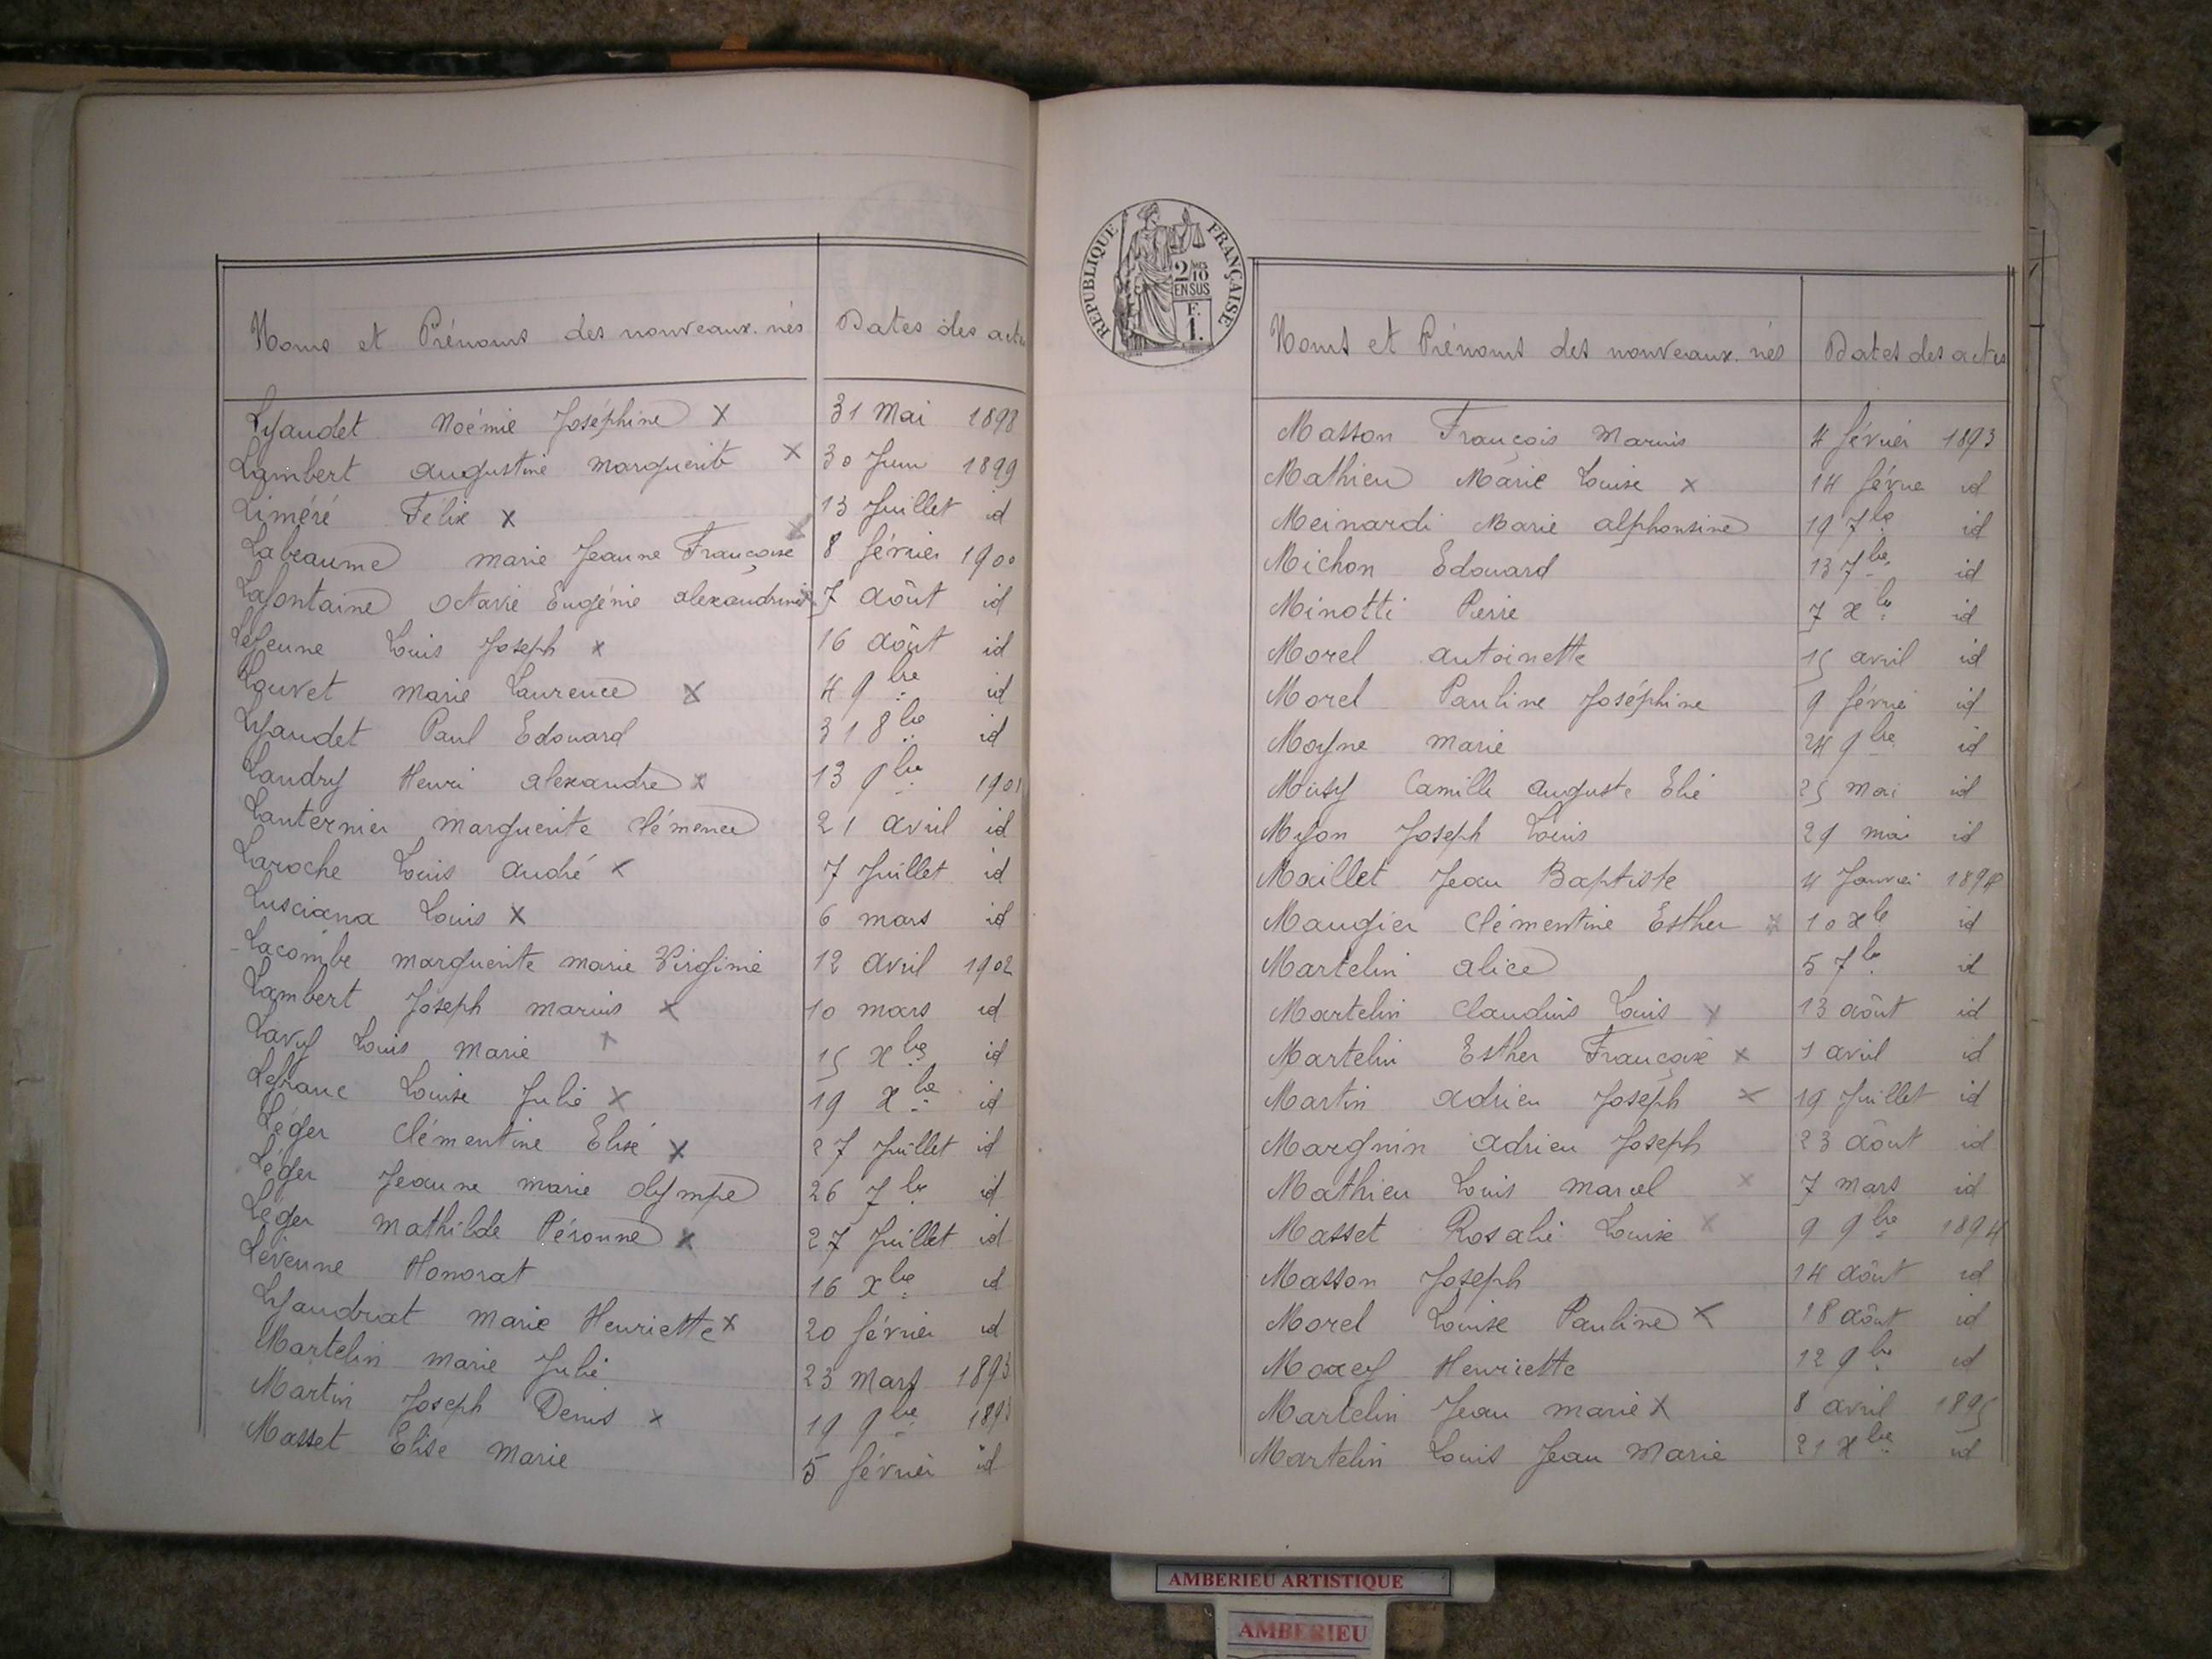 Noms et Prénoms des nouveaux-nés Dates des actes
Lyaudet Noémie Joséphine X 31 Mai 1898
Lambert augustine marguerite X 30 Juin 1899
Liméré Félix X 13 Juillet id
Labeaume marie Jeanne Françoise X 8 février 1900
Lafontaine octavie Eugénie alexandrine X 7 août id
LeJeune Louis Joseph X 16 août id
Louvet marie Laurence X 4 9bre id
Lyaudet Paul Edouard 31 8bre id
Landry Henri alexandre X 13 9bre 1901
Lanternier marguerite clémence 21 avril id
Laroche Louis andré X 7 Juillet id
Lusciana Louis X 6 mars id
Lacombe marguerite marie Virginie 12 avril 1902
Lambert Joseph marius X 10 mars id
Lavy Louis marie X 15 xbre id
Lefranc Louise Julie X 19 xbre id
Léger clémentine Elise X 27 Juillet id
Léger Jeanne marie olympe 26 7bre id
Léger mathilde Péronne X 27 Juillet id
Léveune Honorat 16 xbre id
Lyaudrat marie Henriette X 20 février id
Martelin marie Julie 23 mars 1893
Martin Joseph Denis X 19 9bre 1893
Masset Elise marie 5 février id
REPUBLIQUE FRANÇAISE
2/10 MES
EN SUS
F.
1.
Noms et Prénoms des nouveaux-nés Dates des actes
Masson François marius 4 février 1893
Mathieu Marie Louise X 14 févrie id
Meinardi Marie alphonsine 19 7bre id
Michon Edouard 13 7bre id
Minotti Pierre 7 xbre id
Morel antoinette 15 avril id
Morel Pauline Joséphine 9 févrie id
Moyne marie 24 9bre id
Musy Camille auguste Elie 25 mai id
Myon Joseph Louis 29 mai id
Maillet Jean Baptiste 4 Janvier 1894
Maugier clémentine Esther X 10 xbre id
Martelin alice 5 7bre id
Martelin claudius Louis X 13 août id
Martelin Esther Françoise X 1 avril id
Martin adrien Joseph X 19 Juillet id
Margnin adrien Joseph 23 août id
Mathieu Louis marcel X 7 mars id
Masset Rosalie Louise X 9 9bre 1894
Masson Joseph 14 août id
Morel Louise Pauline X 18 août id
Morey Henriette 12 9bre id
Martelin Jean marie X 8 avril 1895
Martelin Louis Jean Marie 21 xbre id
AMBERIEU ARTISTIQUE
AMBERIEU